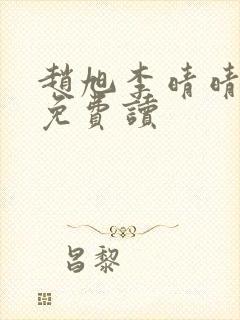 趙旭李晴晴
免費讀
昌黎